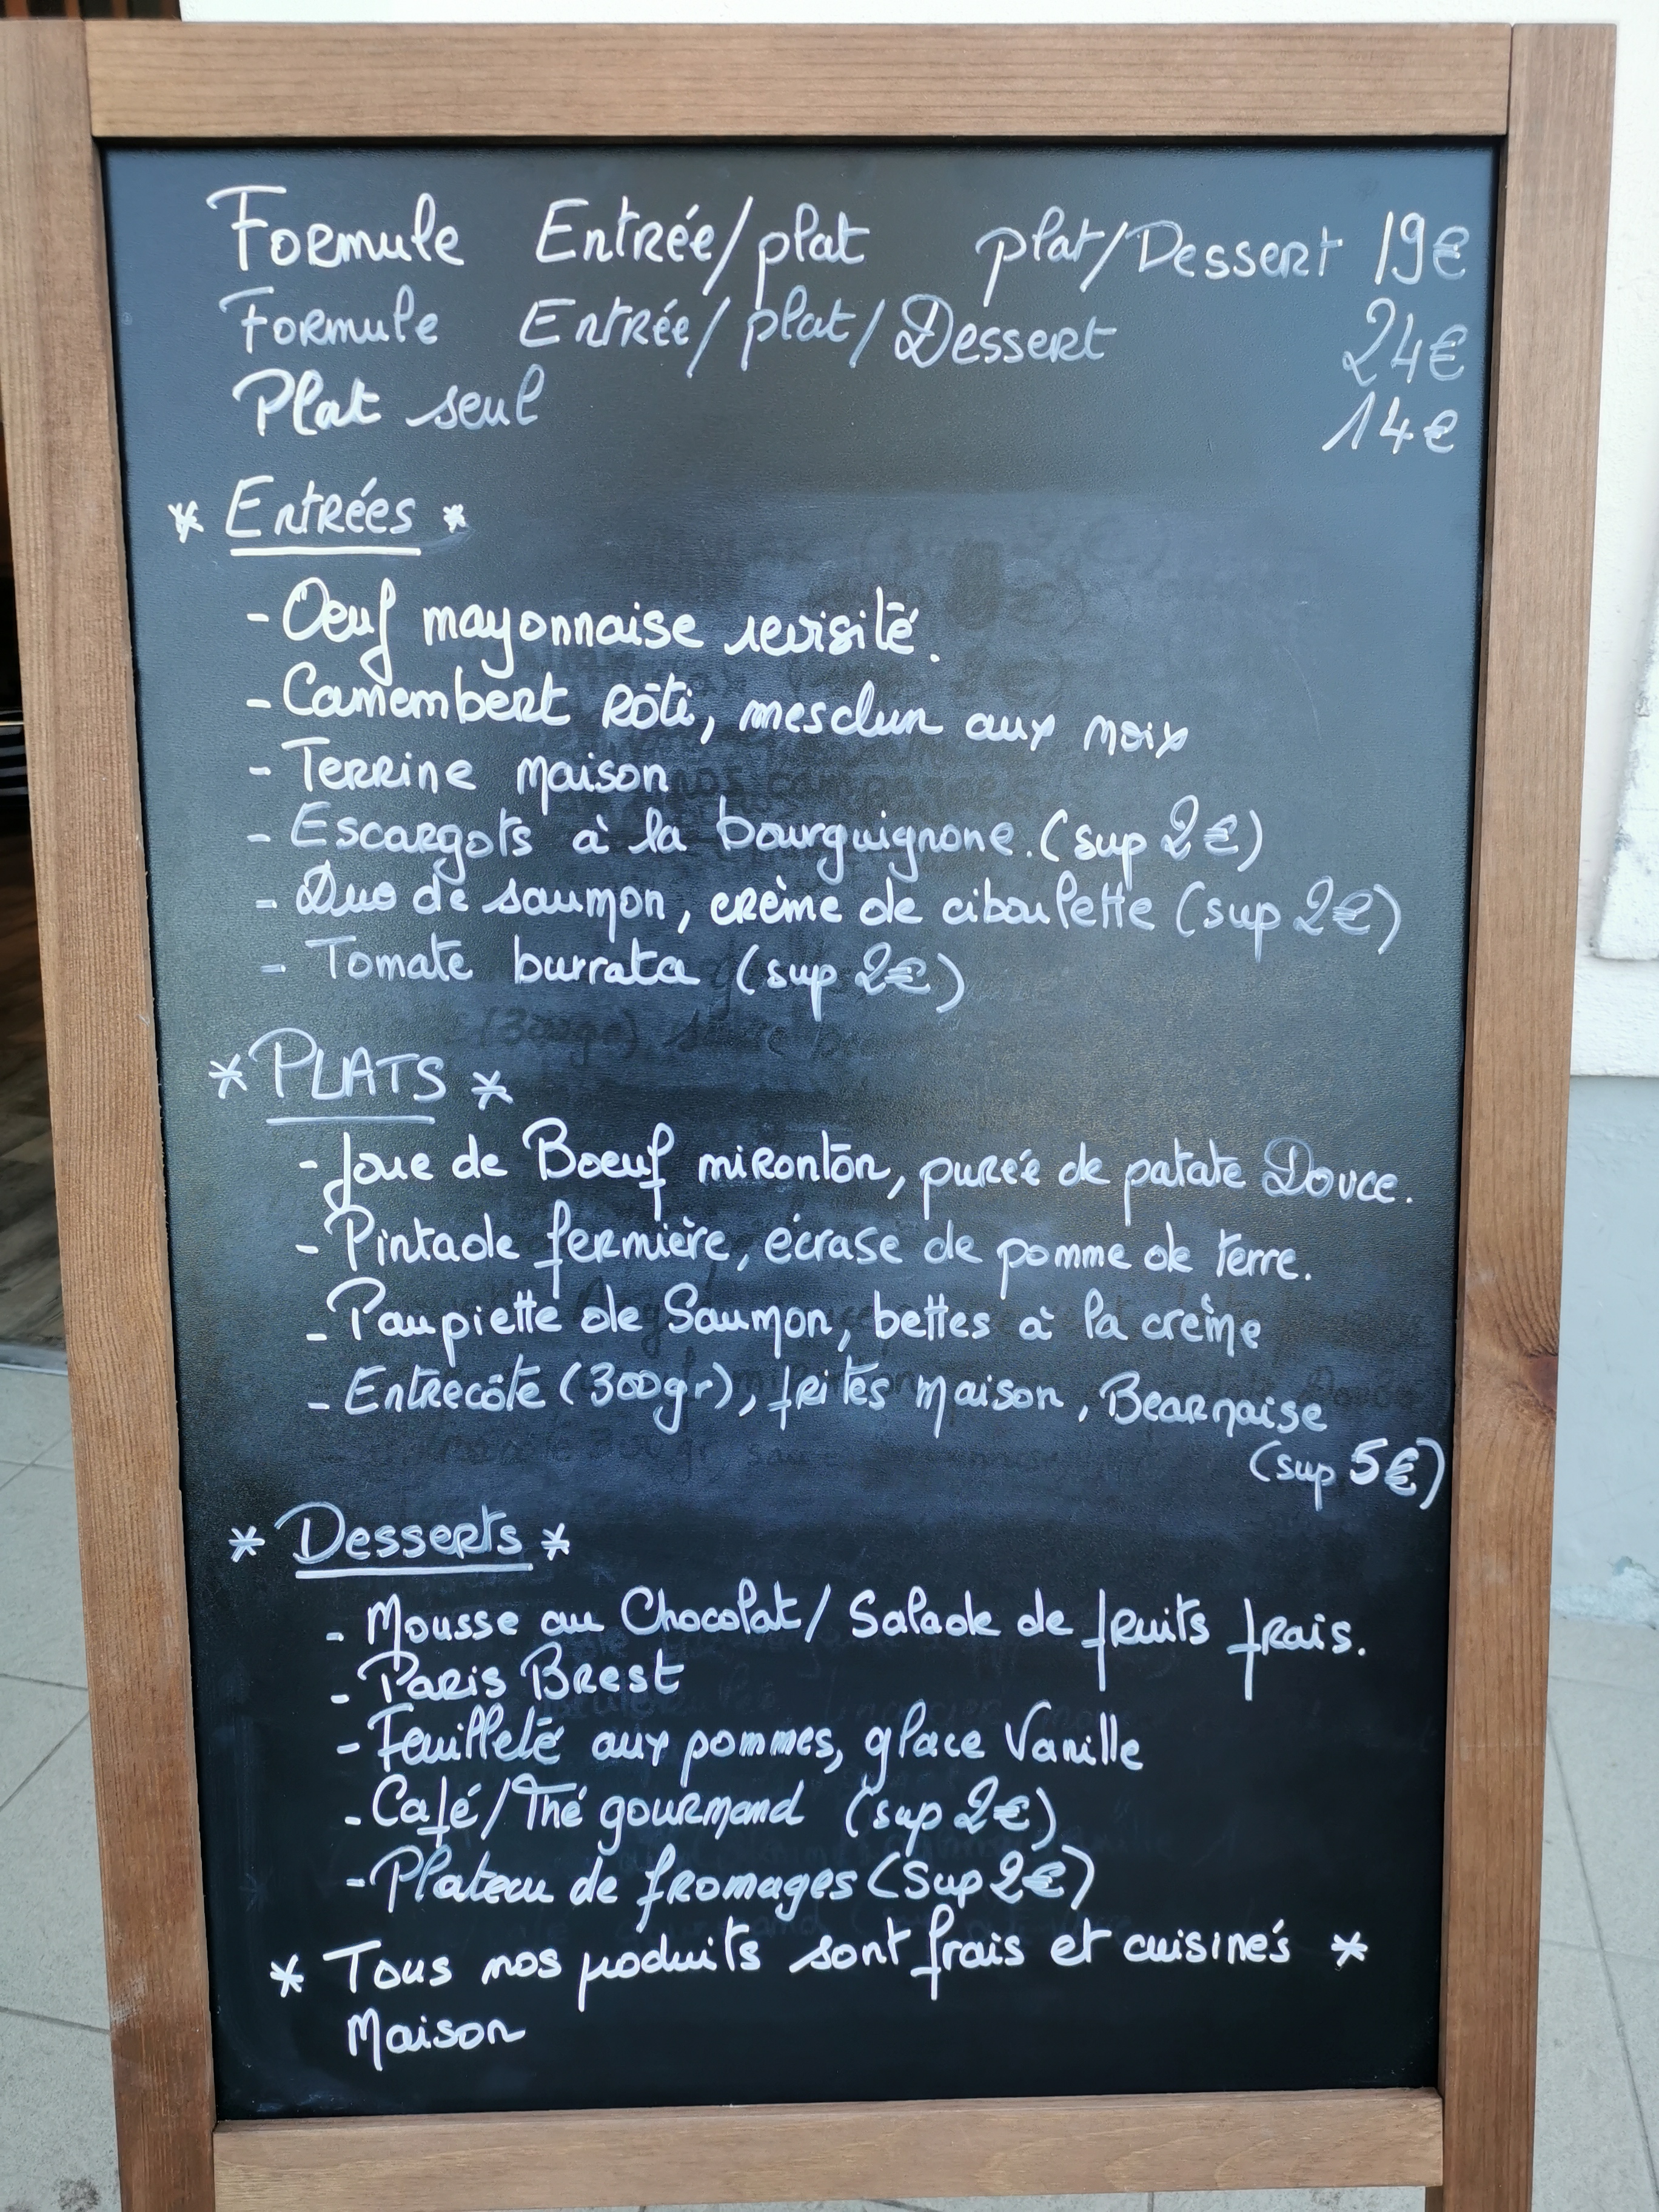 Formule Entrée/plat plat/Dessert 19€
Formule Entrée/plat/Dessert 24€
Plat seul 14€
* Entrées *
- Oeuf mayonnaise revisité.
- Camembert Rôti, mesclun aux noix
- Terrine Maison
- Escargots à la bourguignone. (sup 2€)
- Duo de saumon, crème de ciboulette (sup 2€)
- Tomate burrata (sup 2€)
* PLATS *
- Joue de Boeuf mironton, purée de patate Douce.
- Pintade fermière, écrasé de pomme de terre.
- Paupiette de Saumon, bettes à la crème
- Entrecôte (300gr), frites Maison, Bearnaise
(sup 5€)
* Desserts *
- Mousse au Chocolat/ Salade de fruits frais.
- Paris Brest
- Feuilleté aux pommes, glace Vanille
- Café/Thé gourmand (sup 2€)
- Plateau de fromages (Sup 2€)
* Tous nos produits sont frais et cuisinés *
Maison